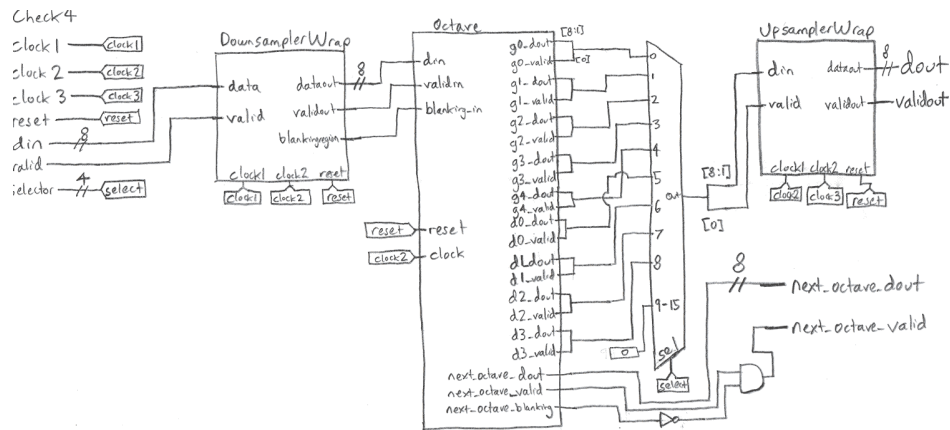 Check4
clock1 clock1
clock 2 clock2
clock 3 clock3
reset reset
din 8
valid
selector 4 select
DownsamplerWrap
data
valid
dataout 8
validout
blankingregion
clock1 clock2 reset
clock1 clock2 reset
Octave
din
validin
blanking_in
reset reset
clock2 clock
g0_dout
g0_valid
g1_dout
g1_valid
g2_dout
g2_valid
g3_dout
g3_valid
g4_dout
g4_valid
d0_dout
d0_valid
d1_dout
d1_valid
d2_dout
d2_valid
d3_dout
d3_valid
next_octave_dout
next_octave_valid
next_octave_blanking
[8:1]
[0]
0
1
2
3
4
5
6
7
8
9-15
0
out
sel
select
[8:1]
[0]
UpsamplerWrap
din
valid
dataout 8 dout
validout validout
clock1 clock2 reset
clock2 clock3 reset
8
next_octave_dout
next_octave_valid